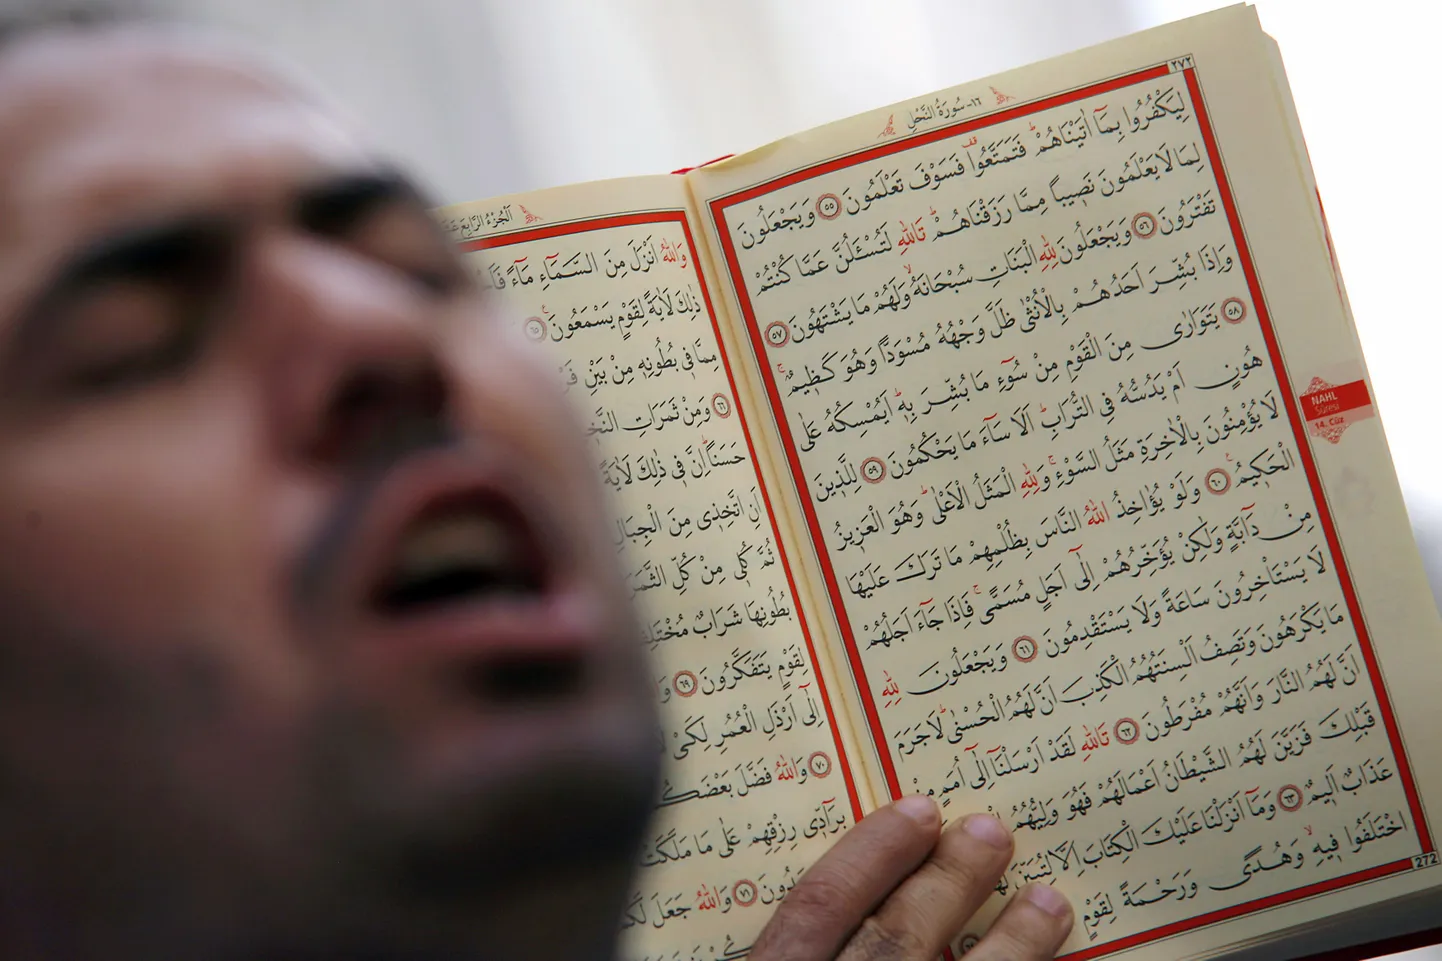 ٢٧٢
١٦- سُورَةُ النَّحْلِ
لِيَكْفُرُوا بِمَٓا اٰتَيْنَاهُمْۜ فَتَمَتَّعُوا۠ فَسَوْفَ تَعْلَمُونَ ﴿٥٥﴾ وَيَجْعَلُونَ
لِمَا لَا يَعْلَمُونَ نَص۪يباً مِمَّا رَزَقْنَاهُمْۜ تَاللّٰهِ لَتُسْـَٔلُنَّ عَمَّا كُنْتُمْ
تَفْتَرُونَ ﴿٥٦﴾ وَيَجْعَلُونَ لِلّٰهِ الْبَنَاتِ سُبْحَانَهُۙ وَلَهُمْ مَا يَشْتَهُونَ ﴿٥٧﴾
وَاِذَا بُشِّرَ اَحَدُهُمْ بِالْاُنْثٰى ظَلَّ وَجْهُهُ مُسْوَداًّ وَهُوَ كَظ۪يمٌۚ
﴿٥٨﴾ يَتَوَارٰى مِنَ الْقَوْمِ مِنْ سُٓوءِ مَا بُشِّرَ بِه۪ۜ اَيُمْسِكُهُ عَلٰى
هُونٍ اَمْ يَدُسُّهُ فِي التُّرَابِۜ اَلَا سَٓاءَ مَا يَحْكُمُونَ ﴿٥٩﴾ لِلَّذ۪ينَ
لَا يُؤْمِنُونَ بِالْاٰخِرَةِ مَثَلُ السَّوْءِۚ وَلِلّٰهِ الْمَثَلُ الْاَعْلٰىۜ وَهُوَ الْعَز۪يزُ
الْحَك۪يمُ۟ ﴿٦٠﴾ وَلَوْ يُؤَاخِذُ اللّٰهُ النَّاسَ بِظُلْمِهِمْ مَا تَرَكَ عَلَيْهَا
مِنْ دَٓابَّةٍ وَلٰكِنْ يُؤَخِّرُهُمْ اِلٰٓى اَجَلٍ مُسَمًّىۚ فَاِذَا جَٓاءَ اَجَلُهُمْ
لَا يَسْتَأْخِرُونَ سَاعَةً وَلَا يَسْتَقْدِمُونَ ﴿٦١﴾ وَيَجْعَلُونَ لِلّٰهِ
مَا يَكْرَهُونَ وَتَصِفُ اَلْسِنَتُهُمُ الْكَذِبَ اَنَّ لَهُمُ الْحُسْنٰىۜ لَا جَرَمَ
اَنَّ لَهُمُ النَّارَ وَاَنَّهُمْ مُفْرَطُونَ ﴿٦٢﴾ تَاللّٰهِ لَقَدْ اَرْسَلْنَٓا اِلٰٓى اُمَمٍ مِنْ
قَبْلِكَ فَزَيَّنَ لَهُمُ الشَّيْطَانُ اَعْمَالَهُمْ فَهُوَ وَلِيُّهُمُ
عَذَابٌ اَل۪يمٌ ﴿٦٣﴾ وَمَٓا اَنْزَلْنَا عَلَيْكَ الْكِتَابَ اِلَّا لِتُبَيِّنَ
اخْتَلَفُوا ف۪يهِۙ وَهُدًى وَرَحْمَةً لِقَوْمٍ
272
NAHL
Sûresi
14. Cüz
اَلْجُزْءُ الرَّابِعَ
وَاللّٰهُ اَنْزَلَ مِنَ السَّمَٓاءِ مَٓاءً
ذٰلِكَ لَاٰيَةً لِقَوْمٍ يَسْمَعُونَ۟ ﴿٦٥﴾
مِمَّا ف۪ي بُطُونِه۪ مِنْ بَيْنِ
﴿٦٦﴾ وَمِنْ ثَمَرَاتِ
حَسَناًۜ اِنَّ ف۪ي ذٰلِكَ لَاٰيَةً
اَنِ اتَّخِذ۪ي مِنَ الْجِبَالِ
ثُمَّ كُل۪ي مِنْ كُلِّ
بُطُونِهَا شَرَابٌ
لِقَوْمٍ يَتَفَكَّرُونَ ﴿٦٩﴾
اِلٰٓى اَرْذَلِ الْعُمُرِ لِكَيْ
﴿٧٠﴾ وَاللّٰهُ فَضَّلَ بَعْضَكُمْ
بِرَٓادّ۪ي رِزْقِهِمْ عَلٰى مَا مَلَكَتْ
﴿٧١﴾ وَاللّٰهُ جَعَلَ